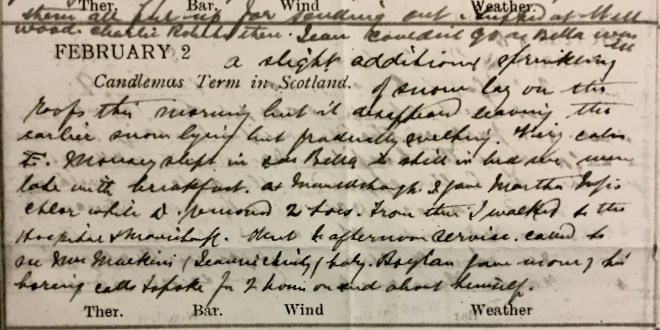 Ther. Bar. Wind Weather.
them all put up for sending out. Supped at Well
wood. Charlie Roberts there. Jean couldn't go as Bella was ill
FEBRUARY 2 a slight additional sprinkling
Candlemas Term in Scotland. of snow lay on the
roofs this morning but it disappeared leaving the
earlier snow lying but gradually melting. Very calm
slept in as Bella is still in bed we were
late with breakfast. at I gave Martha
chlor while D. removed 2 toes. From there I walked to the
Hospital & Went to afternoon service. called to
see Mrs baby. Boylan gave one of his
boring calls & spoke for 2 hours on and about himself.
Ther. Bar. Wind Weather